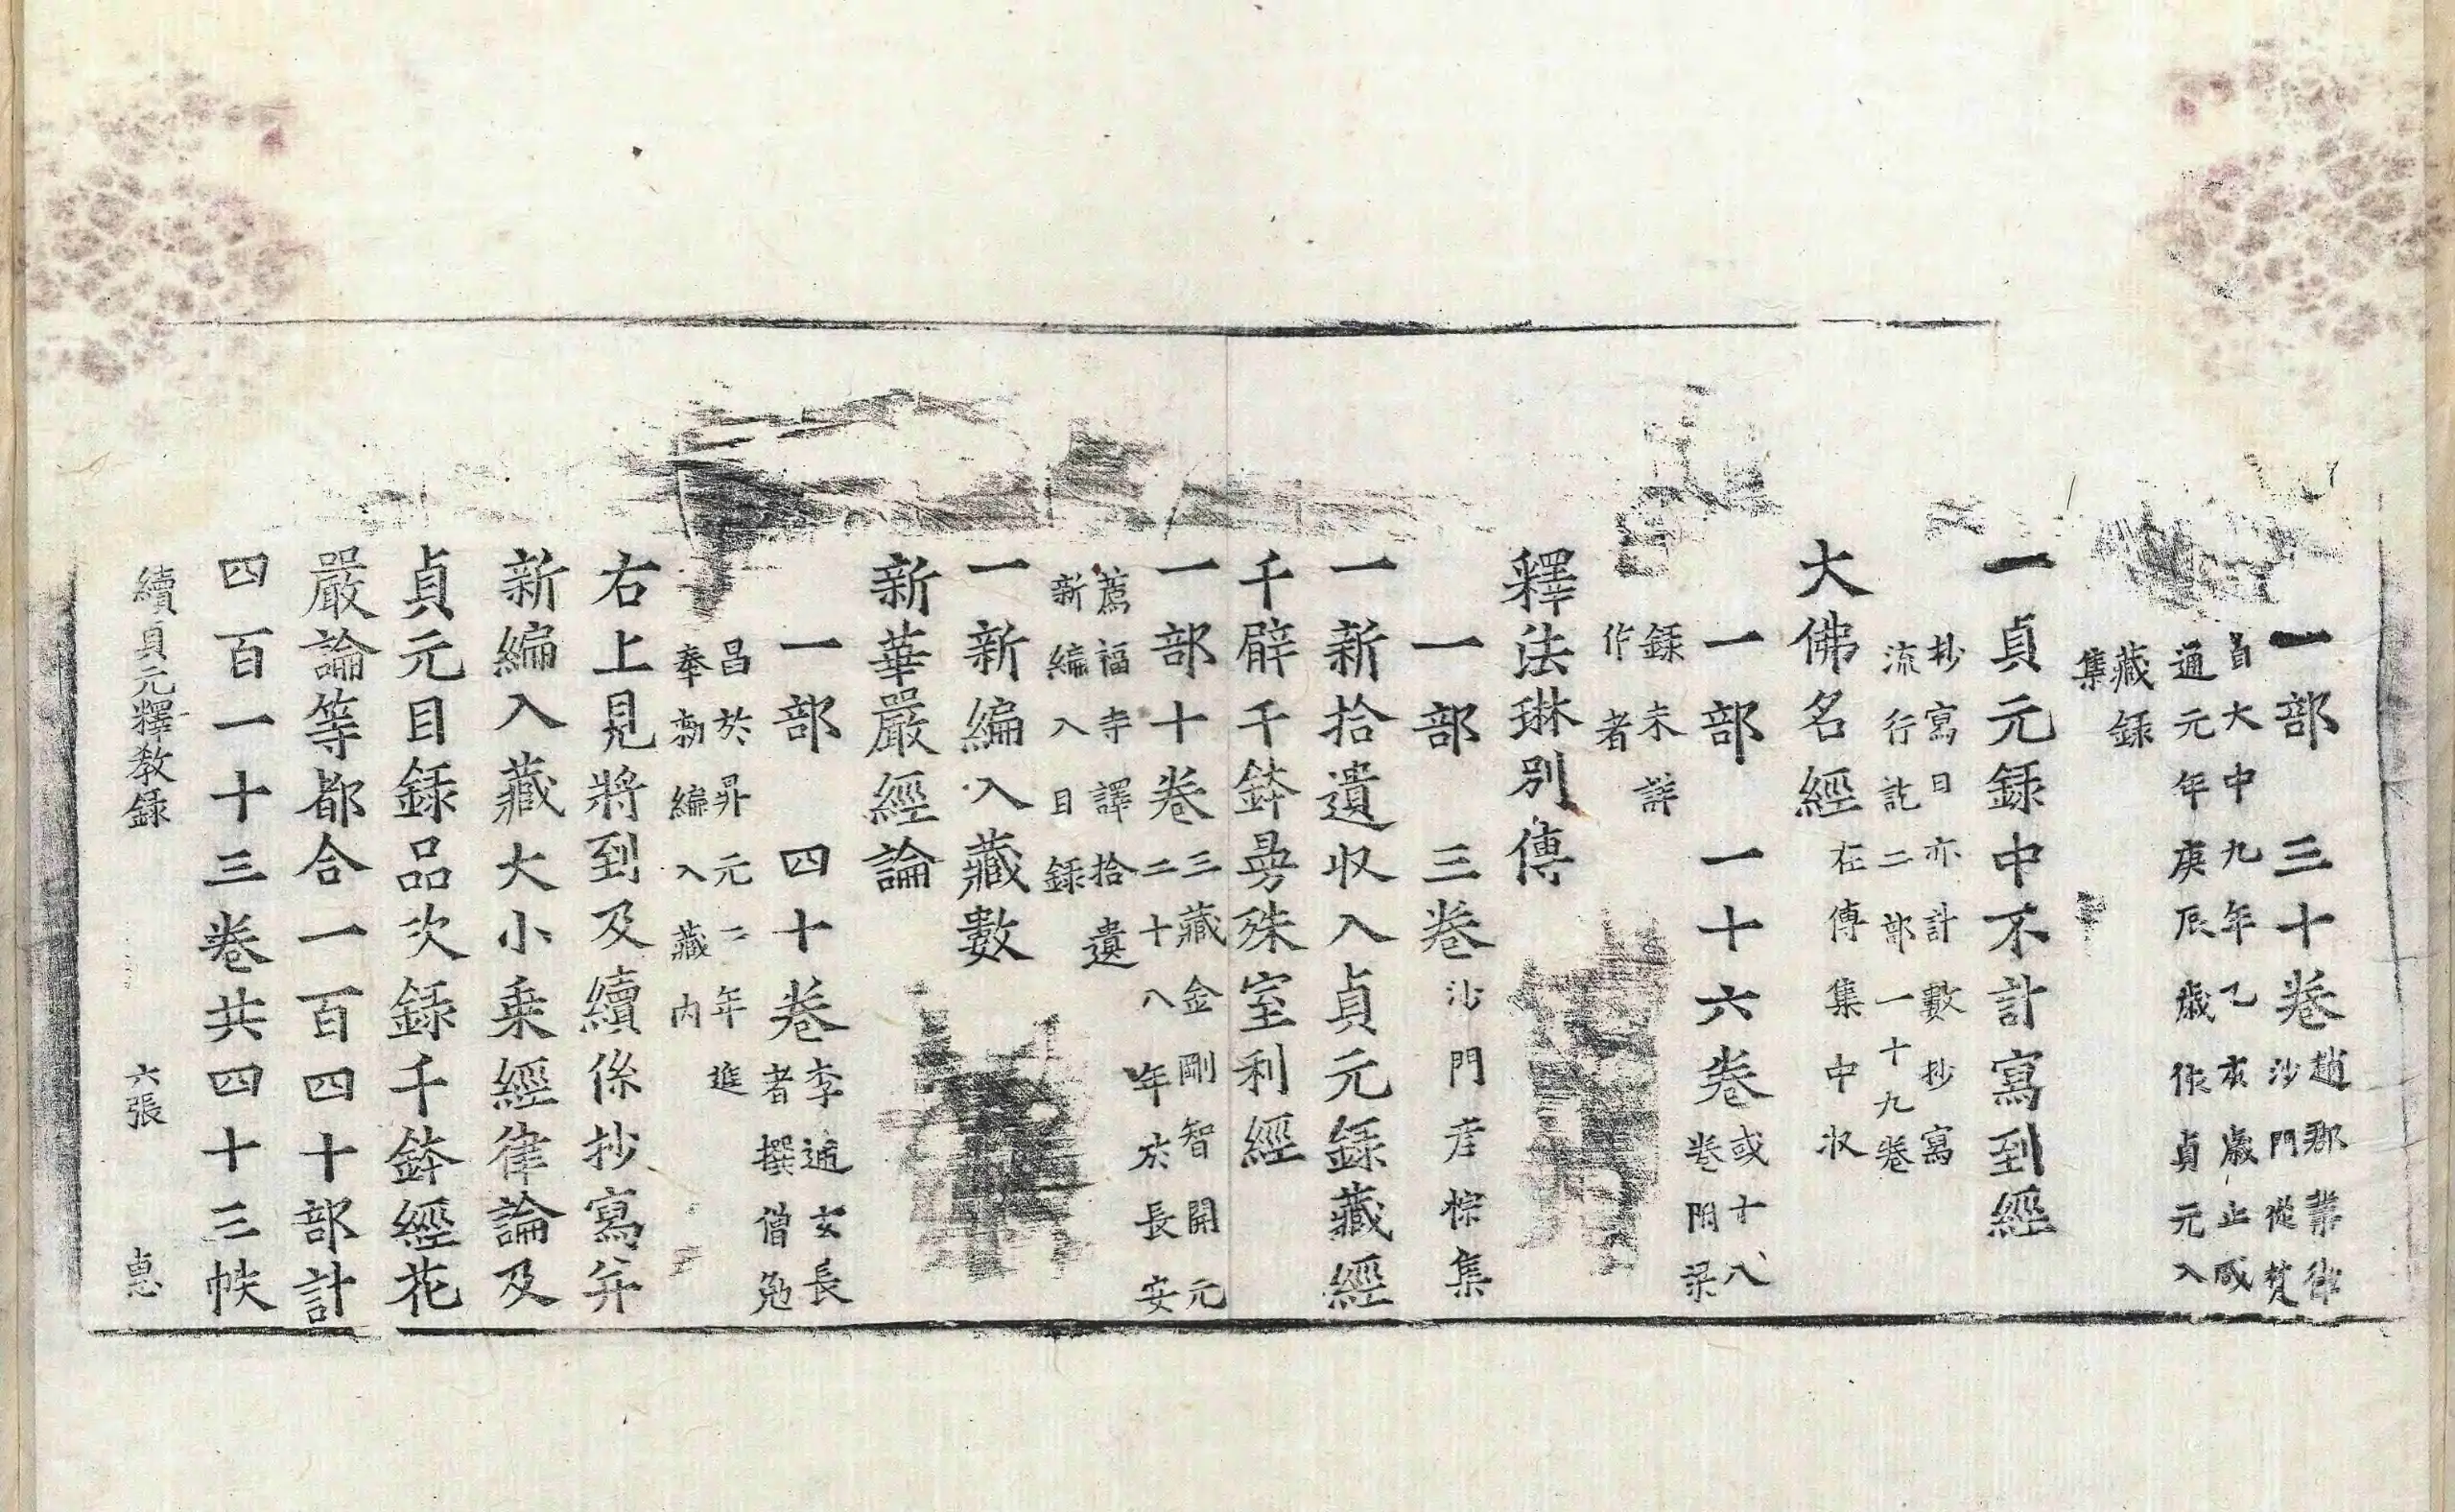 一部三十卷趙郡業律
沙門從梵
自大中九年乙亥歲止戍
通元年庚辰歲作貞元入
藏録
集
一貞元録中不計寫到經
抄寫日亦計數抄寫
流行訖二部一十九卷
在傳集中収
大佛名經
一部一十六卷或十八
卷開梁
録未詳
作者
釋法琳別傳
一部三卷沙門彦悰集
一新拾遺収入貞元録藏經
千臂千鉢曼殊室利經
一部十卷三藏金剛智開元
二十八年於長安
薦福寺譯拾遺
新編入目録
一新編入藏數
新華嚴經論
一部四十卷李通玄長
者撰僧勉
昌於昇元二年進
奉勑編入藏内
右上見將到及續係抄寫并
新編入藏大小乗經律論及
貞元目録品次録千鉢經花
嚴論等都合一百四十部計
四百一十三卷共四十三帙
續貞元釋教録 六張